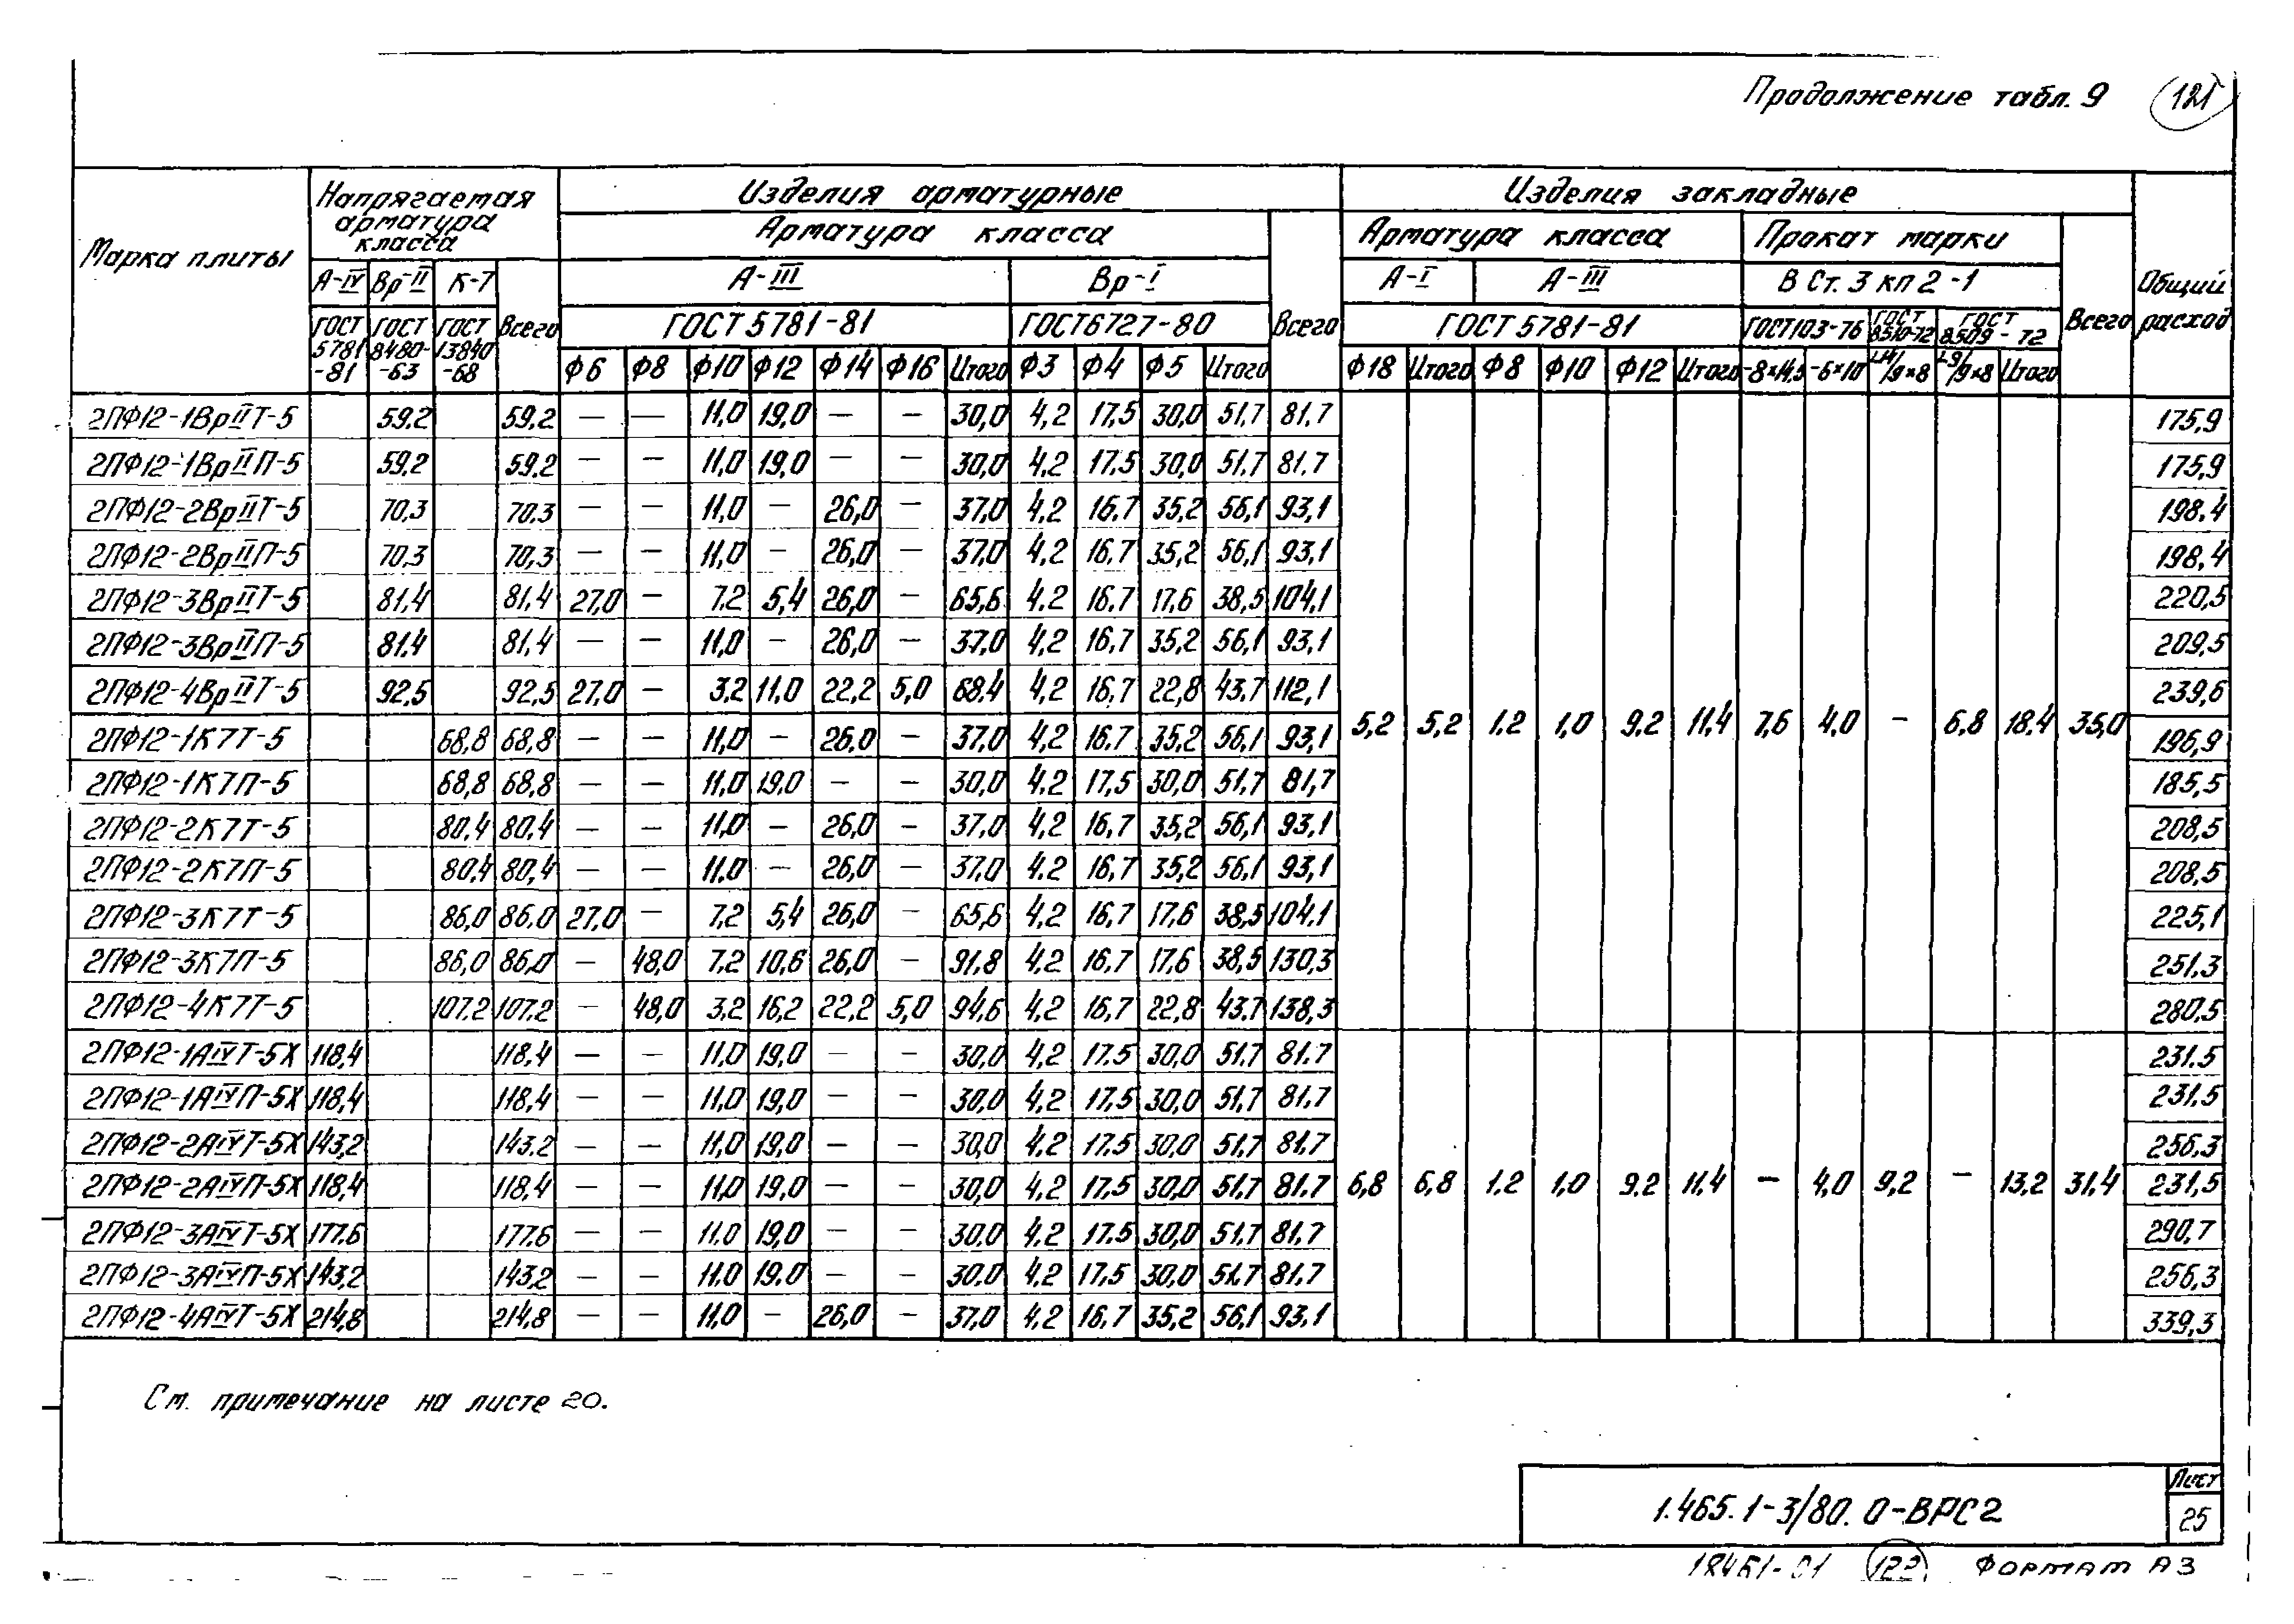 Продолжение табл. 9 121
Марка плиты | Напрягаемая арматура класса | Изделия арматурные | Изделия закладные | Общий расход
Арматура класса | Всего | Арматура класса | Прокат марки | Всего
А-IV | Вр-II | К-7 | Всего | А-III | Вр-I | А-I | А-III | В Ст. 3 кп 2-1
ГОСТ 5781-81 | ГОСТ 8480-63 | ГОСТ 13840-68 | ГОСТ 5781-81 | ГОСТ 6727-80 | ГОСТ 5781-81 | ГОСТ 103-76 | ГОСТ 8510-72 | ГОСТ 8509-72
Ф6 | Ф8 | Ф10 | Ф12 | Ф14 | Ф16 | Итого | Ф3 | Ф4 | Ф5 | Итого | Ф18 | Итого | Ф8 | Ф10 | Ф12 | Итого | -8×14,5 | -6×10 | /9×8 | /9×8 | Итого
2ПФ12-1ВрIIТ-5 59,2 59,2 — — 11,0 19,0 — — 30,0 4,2 17,5 30,0 51,7 81,7 175,9
2ПФ12-1ВрIIП-5 59,2 59,2 — — 11,0 19,0 — — 30,0 4,2 17,5 30,0 51,7 81,7 175,9
2ПФ12-2ВрIIТ-5 70,3 70,3 — — 11,0 — 26,0 — 37,0 4,2 16,7 35,2 56,1 93,1 198,4
2ПФ12-2ВрIIП-5 70,3 70,3 — — 11,0 — 26,0 — 37,0 4,2 16,7 35,2 56,1 93,1 198,4
2ПФ12-3ВрIIТ-5 81,4 81,4 27,0 — 7,2 5,4 26,0 — 65,6 4,2 16,7 17,6 38,5 104,1 220,5
2ПФ12-3ВрIIП-5 81,4 81,4 — — 11,0 — 26,0 — 37,0 4,2 16,7 35,2 56,1 93,1 209,5
2ПФ12-4ВрIIТ-5 92,5 92,5 27,0 — 3,2 11,0 22,2 5,0 68,4 4,2 16,7 22,8 43,7 112,1 239,6
5,2 5,2 1,2 1,0 9,2 11,4 7,6 4,0 — 6,8 18,4 35,0
2ПФ12-1К7Т-5 68,8 68,8 — — 11,0 — 26,0 — 37,0 4,2 16,7 35,2 56,1 93,1 196,9
2ПФ12-1К7П-5 68,8 68,8 — — 11,0 19,0 — — 30,0 4,2 17,5 30,0 51,7 81,7 185,5
2ПФ12-2К7Т-5 80,4 80,4 — — 11,0 — 26,0 — 37,0 4,2 16,7 35,2 56,1 93,1 208,5
2ПФ12-2К7П-5 80,4 80,4 — — 11,0 — 26,0 — 37,0 4,2 16,7 35,2 56,1 93,1 208,5
2ПФ12-3К7Т-5 86,0 86,0 27,0 — 7,2 5,4 26,0 — 65,6 4,2 16,7 17,6 38,5 104,1 225,1
2ПФ12-3К7П-5 86,0 86,0 — 48,0 7,2 10,6 26,0 — 91,8 4,2 16,7 17,6 38,5 130,3 251,3
2ПФ12-4К7Т-5 107,2 107,2 — 48,0 3,2 16,2 22,2 5,0 94,6 4,2 16,7 22,8 43,7 138,3 280,5
2ПФ12-1АIVТ-5Х 118,4 118,4 — — 11,0 19,0 — — 30,0 4,2 17,5 30,0 51,7 81,7 231,5
2ПФ12-1АIVП-5Х 118,4 118,4 — — 11,0 19,0 — — 30,0 4,2 17,5 30,0 51,7 81,7 231,5
2ПФ12-2АIVТ-5Х 143,2 143,2 — — 11,0 19,0 — — 30,0 4,2 17,5 30,0 51,7 81,7 256,3
2ПФ12-2АIVП-5Х 118,4 118,4 — — 11,0 19,0 — — 30,0 4,2 17,5 30,0 51,7 81,7 6,8 6,8 1,2 1,0 9,2 11,4 — 4,0 9,2 — 13,2 31,4 231,5
2ПФ12-3АIVТ-5Х 177,6 177,6 — — 11,0 19,0 — — 30,0 4,2 17,5 30,0 51,7 81,7 290,7
2ПФ12-3АIVП-5Х 143,2 143,2 — — 11,0 19,0 — — 30,0 4,2 17,5 30,0 51,7 81,7 256,3
2ПФ12-4АIVТ-5Х 214,8 214,8 — — 11,0 — 26,0 — 37,0 4,2 16,7 35,2 56,1 93,1 339,3
См. примечание на листе 20.
1.465.1-3/80. 0-ВРС2
Лист
25
122 Формат А3